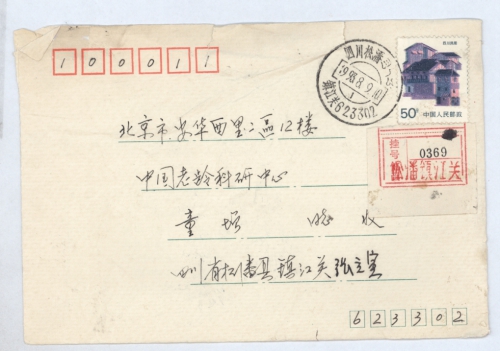 100011
四川松潘
1998.8.9.10
1
镇江关623302
50分 中国人民邮政
挂号 0369
松潘镇江关
北京市安华西里二区12楼
中国老龄科研中心
童 增 收
四川省松潘县镇江关张立宝
623302